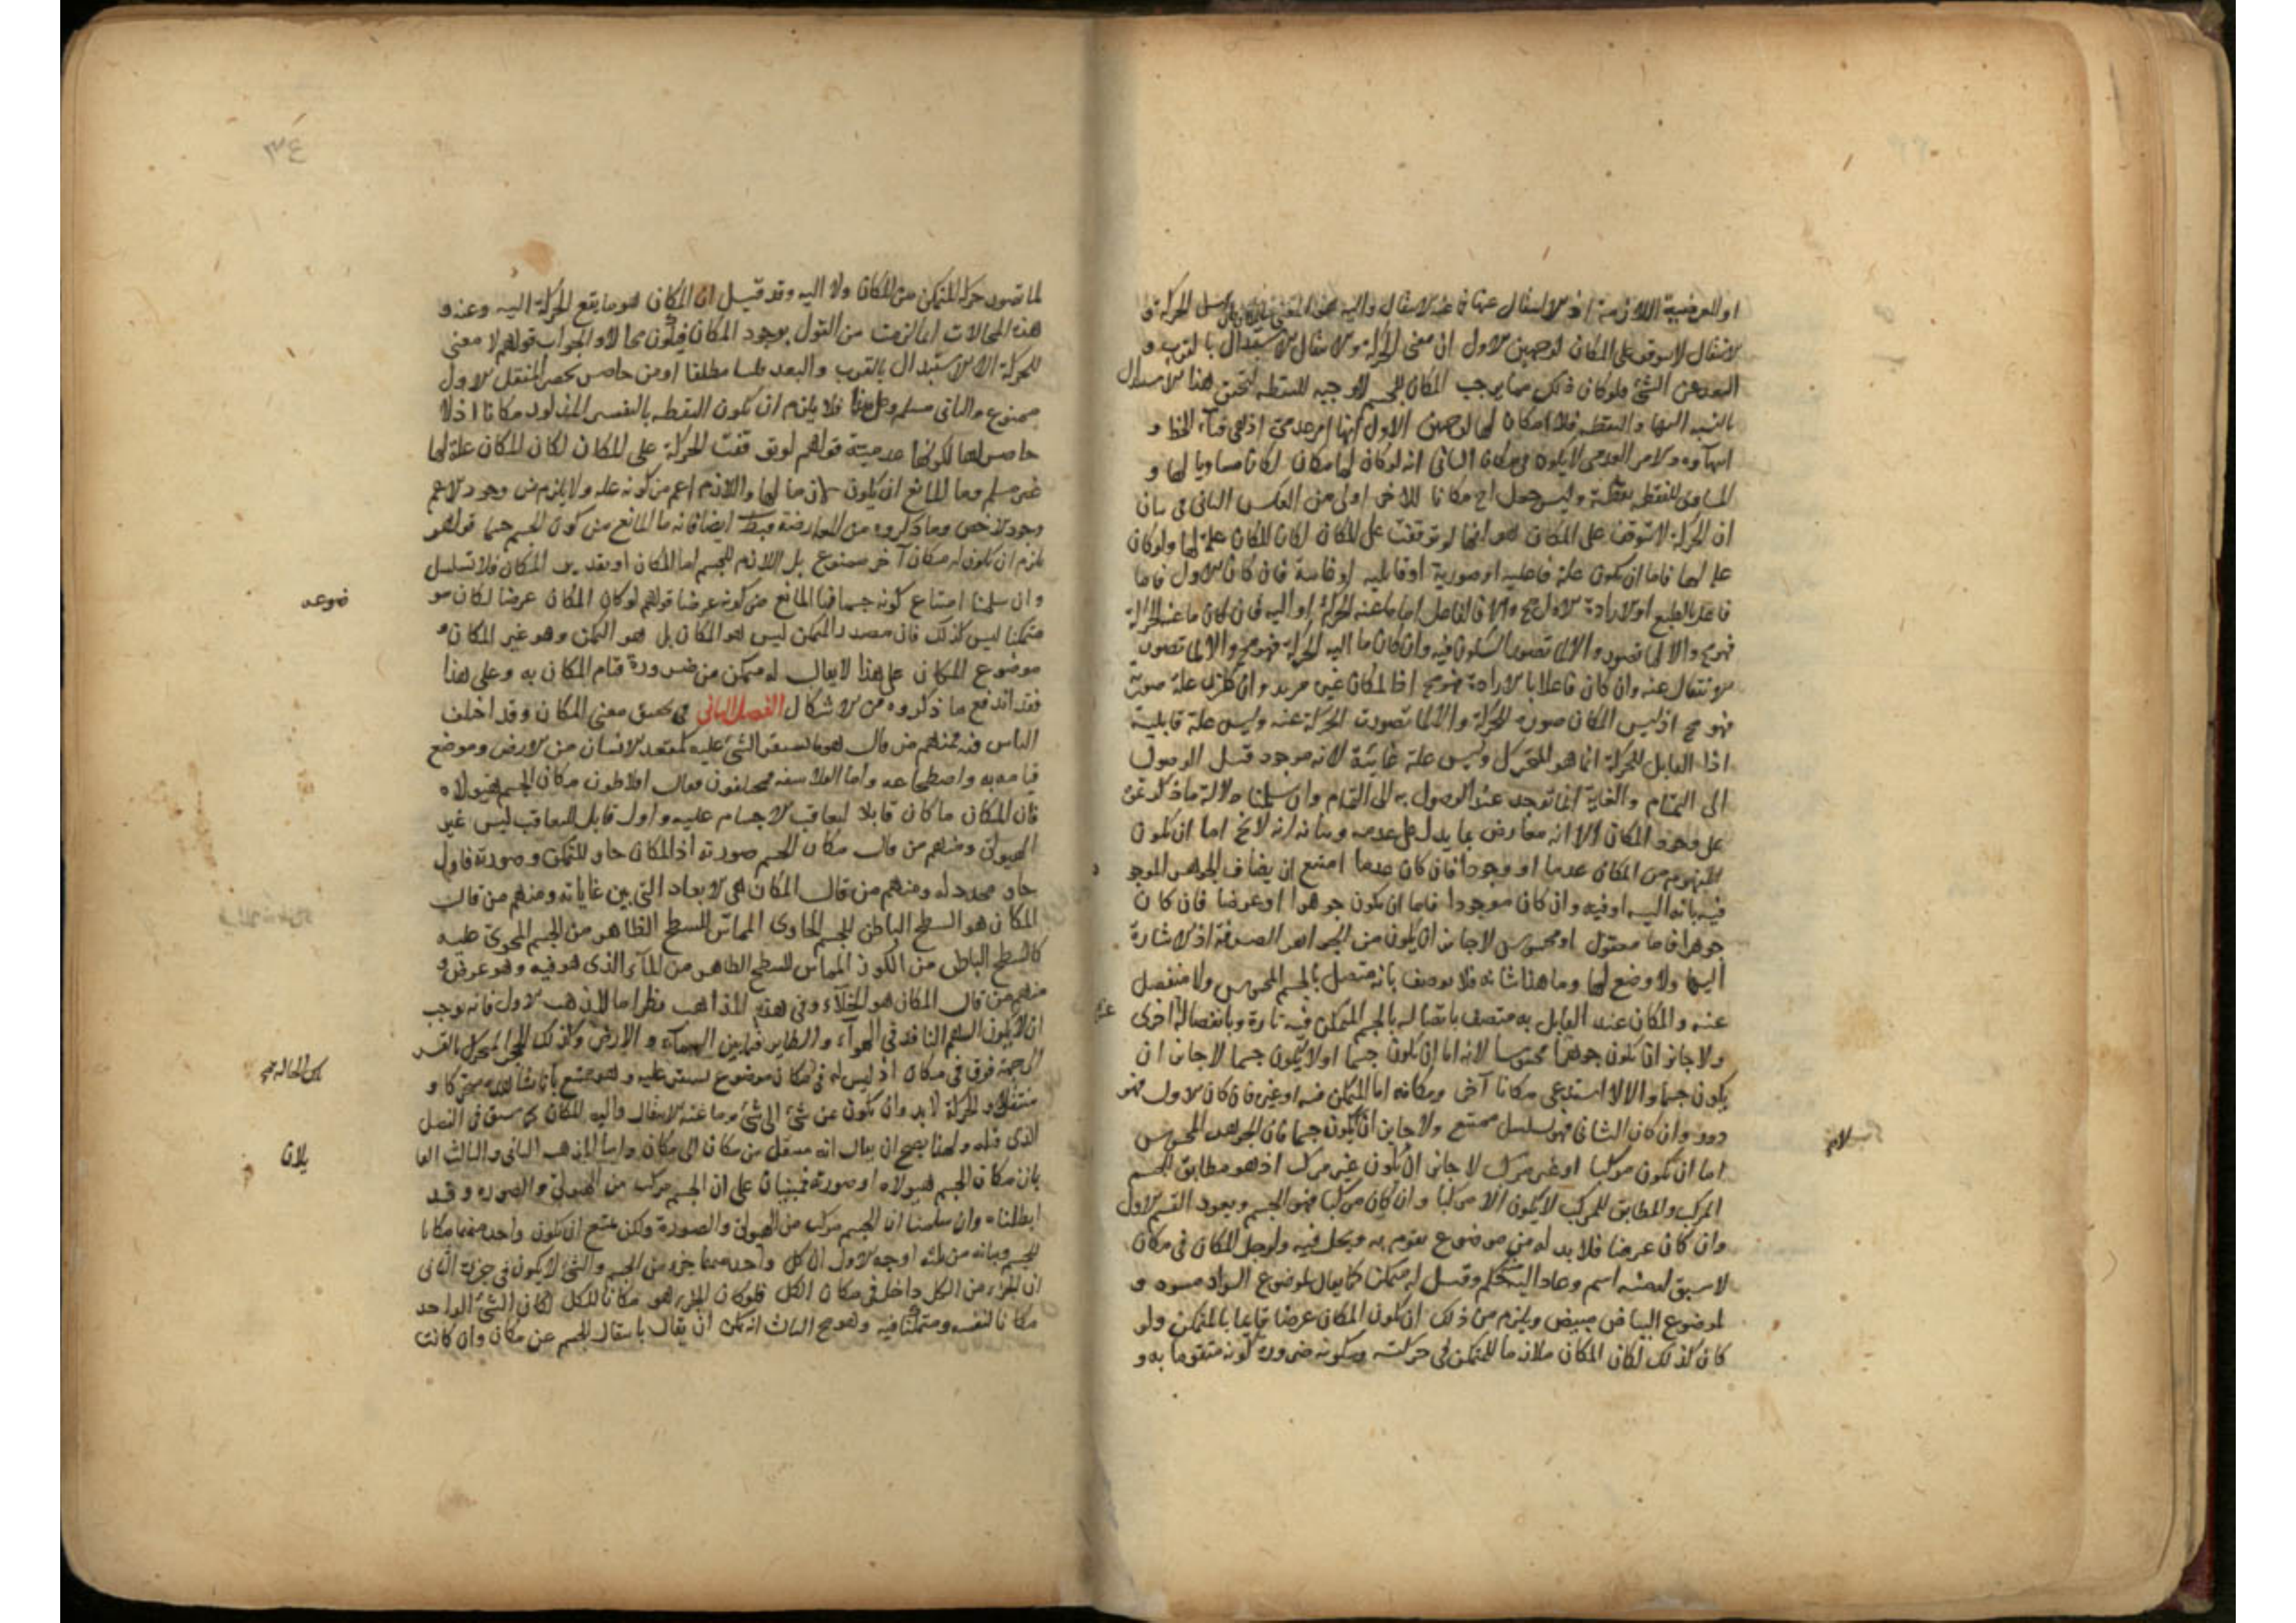 او العرضية اللازمة اذ الانتقال عنها فما عنه الانتقال واليه هو المعنى الحركة و
الانتقال لا يتوقف على المكان لوجهين الاول ان معنى الحركة والانتقال الاستبدال بالقرب و
البعد من الشئ فلو كان ذلك مما يوجب المكان للجسم لاوجبه للنقطة لتحقق هذا الاستبدال
بالنسبة اليها والنقطة فلا مكان لها لوجهين الاول انها امر عدمي اذ هى فناء الخط و
انتهاؤه والامر العدمى لا يكون فى مكان الثانى انه لو كان لها مكان لكان مساويا لها و
المساوى للنقطة نقطة وليس جعل احدهما مكانا للاخر اولى من العكس الثانى فى بيان
ان الحركة لا تتوقف على المكان هو انها لو توقفت على المكان لكان المكان علة لها ولو كان
علة لها فاما ان يكون علة فاعلية او صورية او قابلية او غائية فان كان الاول فاما
فاعل بالطبع او الارادة الاول مح والا فالفاعل اما ما عنه الحركة او اليه فان كان ما عنه الحركة
فهو مح والا لما تصور السكون فيه وان كان ما اليه الحركة فهو مح والا لما تصور
الانتقال عنه وان كان فاعلا بالارادة فهو مح اذ المكان غير مريد وان كان علة صورية
فهو مح اذ ليس المكان صورة للحركة والا لما تصورت الحركة عنه وليس علة قابلية
اذا القابل للحركة انما هو المتحرك وليس علة غائية لانه موجود قبل الوصول
الى التمام والغاية انما توجد عند الوصول الى التمام وان سلمنا دلالة ما ذكرتموه
على وجود المكان الا انه معارض بما يدل على عدمه وبيانه انه لا يخ اما ان يكون
المفهوم من المكان عدما او وجودا فان كان عدما امتنع ان يضاف الجوهر الموجو د
فيه بانه اليه او فيه وان كان موجودا فاما ان يكون جوهرا او عرضا فان كان
جوهرا فاما معقول او محسوس لا جايز ان يكون من الجواهر الصرفة اذ لا اشارة
اليها ولا وضع لها وما هذا شانه فلا يوصف بانه متصل بالجسم المحسوس ولا منفصل
عنه والمكان عند القايل به متصف باتصاله بالجسم المتمكن فيه تارة وبانفصاله اخرى
ولا جايز ان يكون جوهرا محسوسا لانه اما ان يكون جسما او لا يكون جسما لا جايز ان
يكون جسما والا لاستدعى مكانا آخر ومكانه اما المتمكن فيه او غيره فان كان الاول فهو
دور وان كان الثانى فهو تسلسل ممتنع ولا جايز ان لا يكون جسما فان الجوهر المحسوس
اما ان يكون مركبا او غير مركب لا جايز ان يكون غير مركب اذ هو مطابق للجسم
المركب والمطابق للمركب لا يكون الا مركبا وان كان مركبا فهو الجسم ويعود القسم الاول
وان كان عرضا فلا بد له من موضوع يقوم به ويحل فيه ولو حل المكان فى مكان
لاشتق لمحله اسم وعاد اليه الحكم وقيل له متمكن كما يقال لموضوع السواد مسود و
لموضوع البياض مبيض ويلزم من ذلك ان يكون المكان عرضا قايما بالمتمكن ولو
كان كذلك لكان المكان ملازما للمتمكن فى حركته وسكونه ضرورة كونه متقوما به و
٣٤
لما تصور حركة المتمكن من المكان ولا اليه وقد قيل ان المكان هو ما يقع الحركة اليه وعنه و
هذه المحالات انما لزمت من القول بوجود المكان فيكون محالا والجواب قولهم لا معنى
للحركة الا الاستبدال بالقرب والبعد قلنا مطلقا او من حاصر يحصر المنتقل الاول
ممنوع والثانى مسلم وعلى هذا فلا يلزم ان يكون للنقطة بالتفسير المذكور مكانا اذ لا
حاصر لها لكونها عدمية قولهم لو توقفت الحركة على المكان لكان المكان علة لها
غير مسلم وما المانع ان يكون لازما لها واللازم اعم من كونه علة ولا يلزم من وجود الاعم
وجود الاخص وما ذكروه من المعارضة فيبطل ايضا فانه ما المانع من كون الجسم جسما قولهم
يلزم ان يكون له مكان آخر ممنوع بل اللازم للجسم اما المكان او تقدير المكان فلا تسلسل
وان سلمنا امتناع كونه جسما فما المانع من كونه عرضا قولهم لو كان المكان عرضا لكان مو
ضوعه
متمكنا ليس كذلك فان مصدر المتمكن ليس هو المكان بل هو التمكن وهو غير المكان و
موضوع المكان على هذا لا يقال له متمكن من ضرورة قيام المكان به وعلى هذا
فقد اندفع ما ذكروه من الاشكال الفصل الثانى فى تحقيق معنى المكان وقد اختلف
الناس فيه فمنهم من قال هو ما يستقر الشئ عليه كمقعد الانسان من الارض وموضع
قيامه به واضطجاعه واما الفلاسفة فمختلفون فقال افلاطون مكان الجسم هيولاه
فان المكان ما كان قابلا لتعاقب الاجسام عليه واول قابل للتعاقب ليس غير
الهيولى ومنهم من قال مكان الجسم صورته اذ المكان حاو للمتمكن وصورته فاول
حاو محدد له ومنهم من قال المكان هى الابعاد التى بين غاياته ومنهم من قال
المكان هو السطح الباطن للجسم الحاوى المماس للسطح الظاهر من الجسم المحوى عليه
كالسطح الباطن من الكوز المماس للسطح الظاهر من الماء الذى هو فيه وهو عرض و
منهم من قال المكان هو الخلاء وفى هذه المذاهب نظر اما المذهب الاول فانه يوجب
ان لا يكون السهم النافذ فى الهواء والطاير فيما بين السماء والارض وكذلك الحجر المتحرك بالقسر
الى جهة فوق فى مكان اذ ليس له فى مكان موضوع يستقر عليه وهو ممتنع بانا نشاهده متحركا و
منتقلا والحركة لا بد وان يكون عن شئ الى شئ وما عنه الانتقال واليه المكان كما سبق فى الفصل
الذى قبله ولهذا يصح ان يقال انه منتقل من مكان الى مكان واما المذهب الثانى والثالث القا
يلان
بان مكان الجسم هيولاه او صورته فمبنيان على ان الجسم مركب من الهيولى والصورة وقد
ابطلناه وان سلمنا ان الجسم مركب من الهيولى والصورة ولكن يمتنع ان يكون واحد منهما مكانا
للجسم وبيانه من ثلثة اوجه الاول ان كل واحد منهما جزء من الجسم والشئ لا يكون فى جزئه الثانى
ان الجزء من الكل داخل فى مكان الكل فلو كان الجزء هو مكانا للكل لكان الشئ الواحد
مكانا لنفسه ومتمكنا فيه وهو مح الثالث انه يمكن ان يقال بانتقال الجسم عن مكان وان كانت